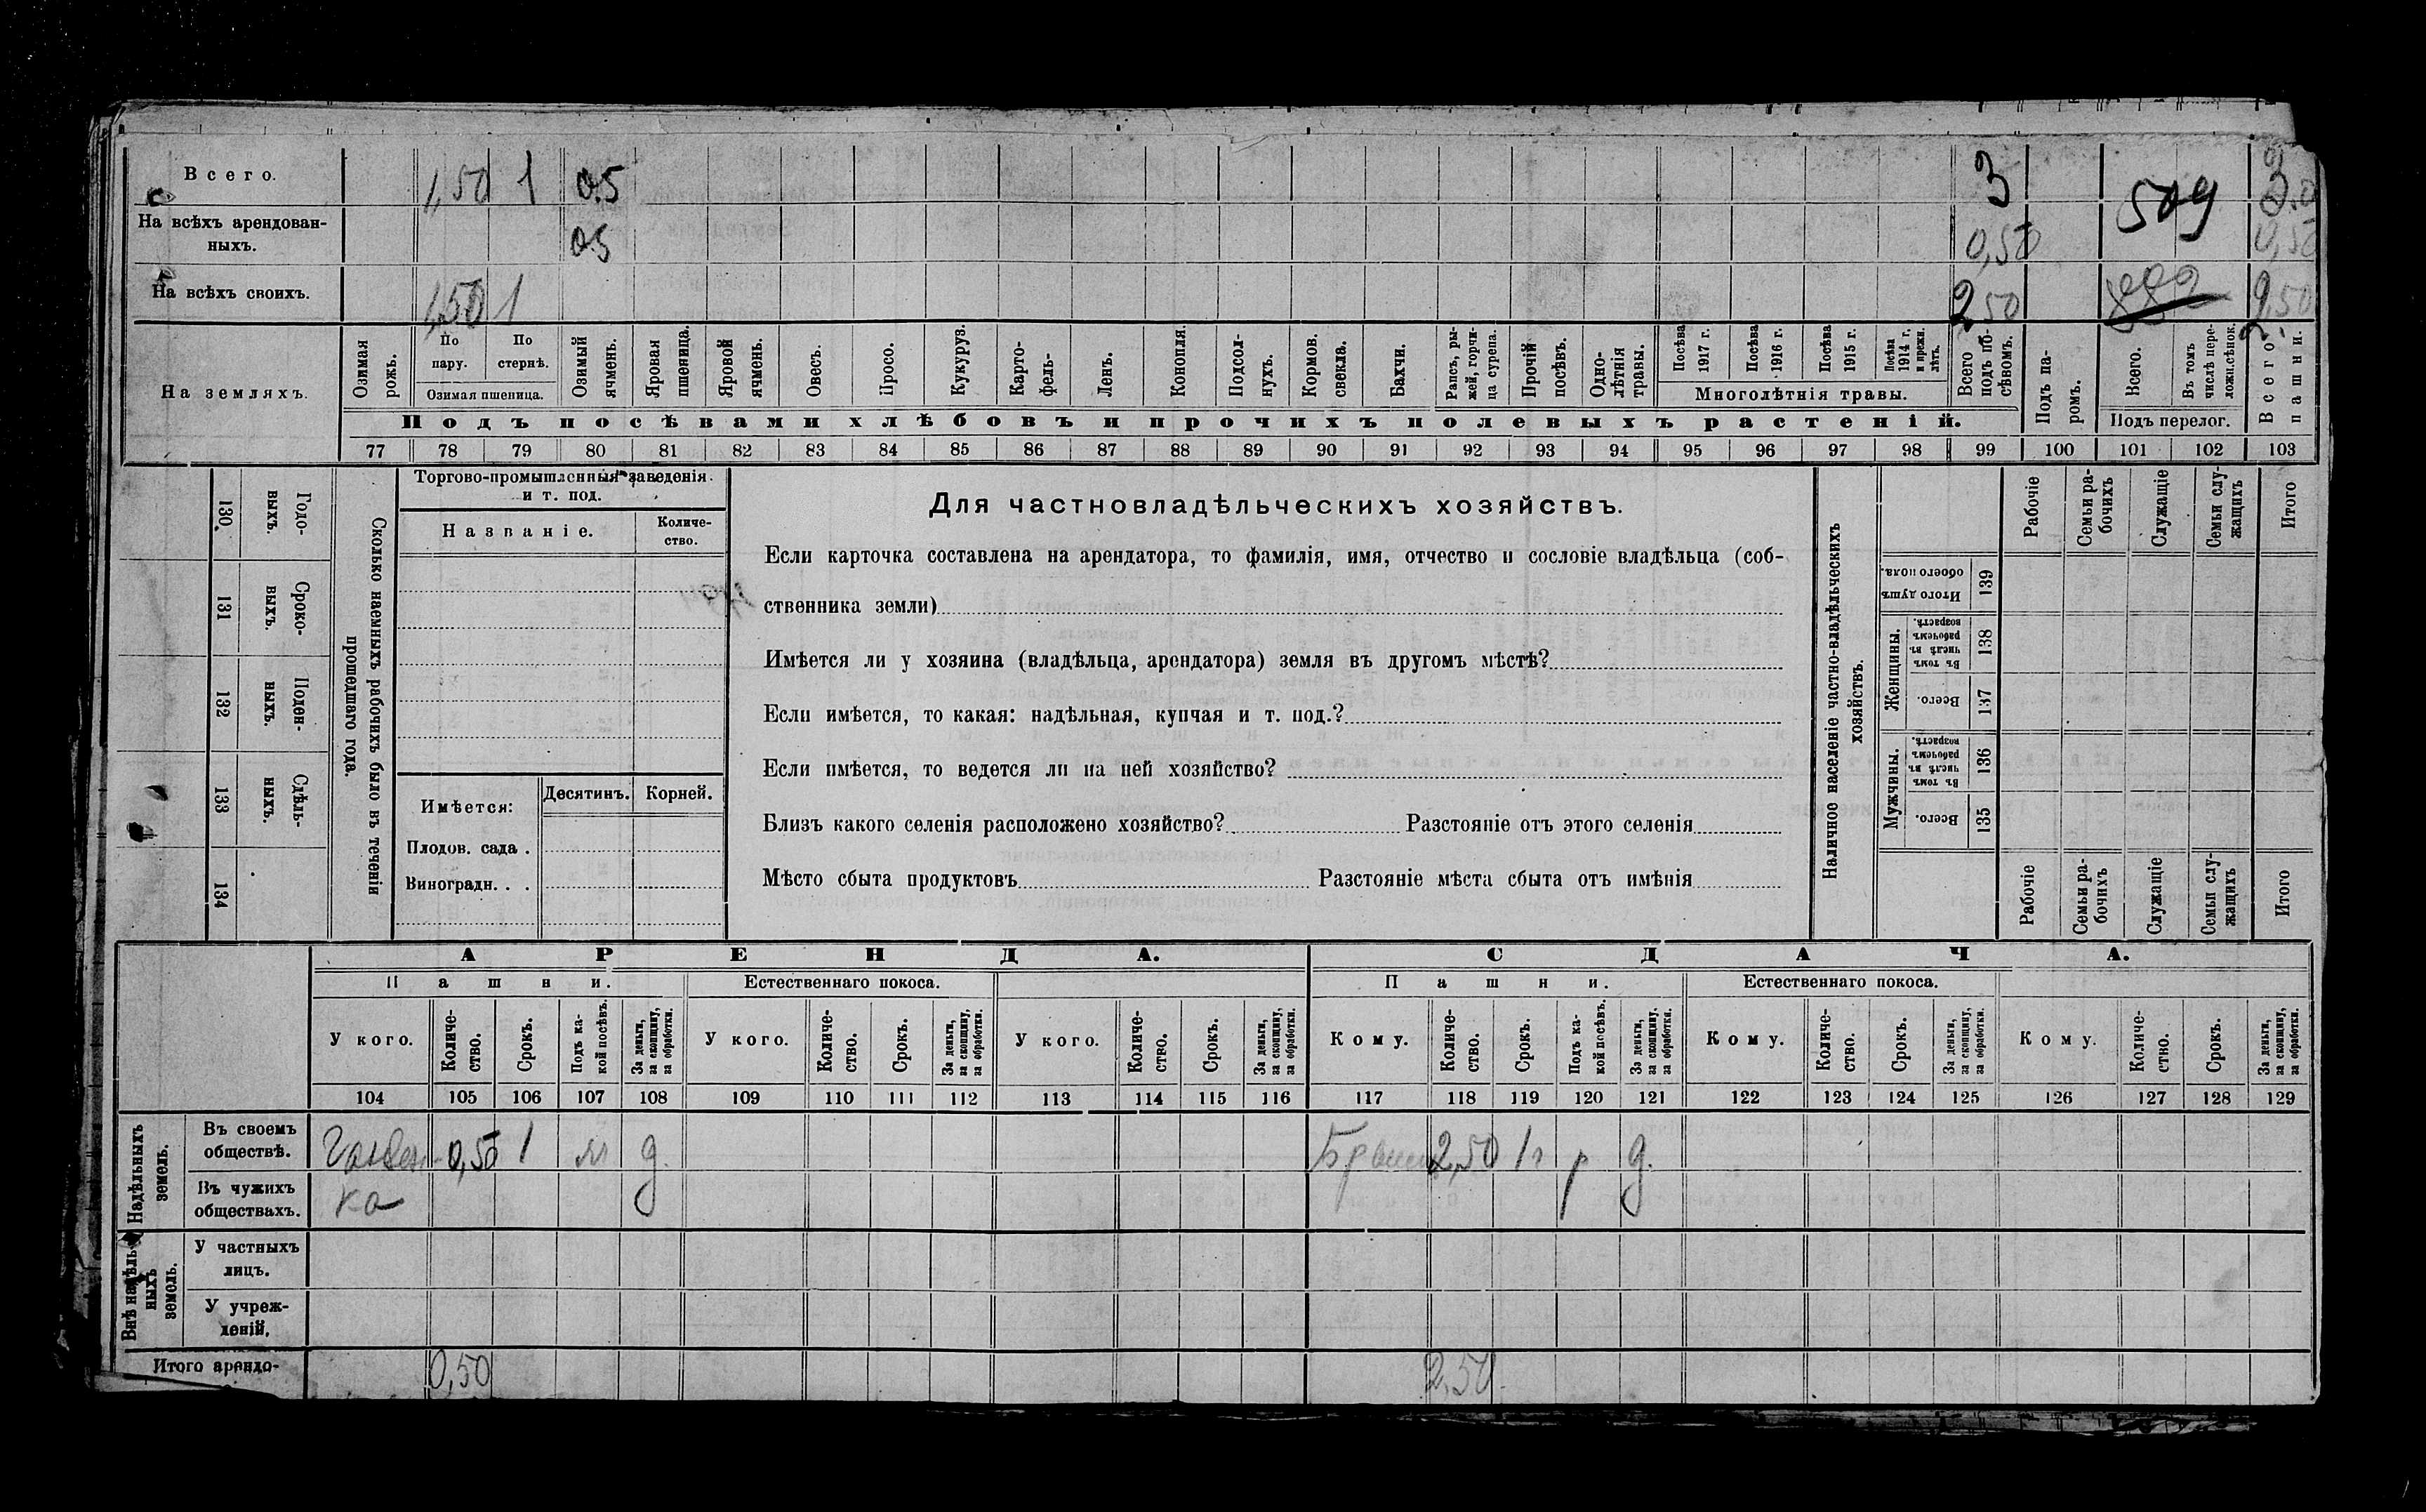 Всего. 1,50 1 0.5 3 509 3.0
На всѣхъ арендован-
ныхъ. 05 0,50 0,50
На всѣхъ своихъ. 1,50 1 2,50 2,50
На земляхъ.
Озимая рожь.
По пару.
По стернѣ.
Озимая пшеница.
Озимый ячмень.
Яровая пшеница.
Яровой ячмень.
Овесъ.
Просо.
Кукуруз.
Карто-
фель-
Ленъ.
Конопля.
Подсол-
нухъ.
Кормов.
свекла.
Бахчи.
Рапсъ, ры-
жей, горчи-
ца сурепа.
Прочій
посѣвъ.
Одно-
лѣтнія
травы.
Посѣва
1917 г.
Посѣва
1916 г.
Посѣва
1915 г.
Посѣва
1914 г.
и прежн.
лѣтъ.
Многолѣтнія травы.
Всего
подъ по-
сѣвомъ.
Подъ па-
ромъ.
Всего.
Въ томъ
числѣ пере-
ложн.сѣнок.
Подъ перелог.
Всего
пашни.
Подъ посѣвами хлѣбовъ и прочихъ полевыхъ растеній.
77 78 79 80 81 82 83 84 85 86 87 88 89 90 91 92 93 94 95 96 97 98 99 100 101 102 103
130. Годо-
выхъ.
131 Сроко-
выхъ.
132 Поден-
ныхъ.
133 Сдѣль-
ныхъ.
134
Сколько наемныхъ рабочихъ было въ теченіи
прошедшаго года.
Торгово-промышленныя заведенія
и т. под.
Названіе.
Количе-
ство.
Имѣется:
Десятинъ. Корней.
Плодов. сада .
Виноградн. . .
Для частновладѣльческихъ хозяйствъ.
Если карточка составлена на арендатора, то фамилія, имя, отчество и сословіе владѣльца (соб-
ственника земли)
Имѣется ли у хозяина (владѣльца, арендатора) земля въ другомъ мѣстѣ?
Если имѣется, то какая: надѣльная, купчая и т. под.?
Если имѣется, то ведется ли на ней хозяйство?
Близъ какого селенія расположено хозяйство? Разстояніе отъ этого селенія
Мѣсто сбыта продуктовъ Разстояніе мѣста сбыта отъ имѣнія
Наличное населеніе частно-владѣльческихъ
хозяйствъ.
Рабочіе
Семьи ра-
бочихъ
Служащіе
Семьи слу-
жащихъ
Итого
Итого душъ
обоего пола. 139
Женщины.
Въ томъ
числѣ въ
рабочемъ
возрастѣ. 138
Всего. 137
Мужчины.
Въ томъ
числѣ въ
рабочемъ
возрастѣ. 136
Всего. 135
Рабочіе
Семьи ра-
бочихъ
Служащіе
Семьи слу-
жащихъ
Итого
АРЕНДА. СДАЧА.
Пашни. Естественнаго покоса. Пашни. Естественнаго покоса.
У кого.
Количе-
ство.
Срокъ.
Подъ ка-
кой посѣвъ.
За деньги,
за скопщину,
за обработки.
У кого.
Количе-
ство.
Срокъ.
За деньги,
за скопщину,
за обработки.
У кого.
Количе-
ство.
Срокъ.
За деньги,
за скопщину,
за обработки.
Кому.
Количе-
ство.
Срокъ.
Подъ ка-
кой посѣвъ.
За деньги,
за скопщину,
за обработки.
Кому.
Количе-
ство.
Срокъ.
За деньги,
за скопщину,
за обработки.
Кому.
Количе-
ство.
Срокъ.
За деньги,
за скопщину,
за обработки.
104 105 106 107 108 109 110 111 112 113 114 115 116 117 118 119 120 121 122 123 124 125 126 127 128 129
Надѣльныхъ
земель.
Въ своемъ
обществѣ. 0,50 1 д. 2,50 1г р д.
Въ чужихъ
обществахъ. ка
Внѣ надѣль-
ныхъ
земель.
У частныхъ
лицъ.
У учреж-
деній.
Итого арендо- 0,50 2,50